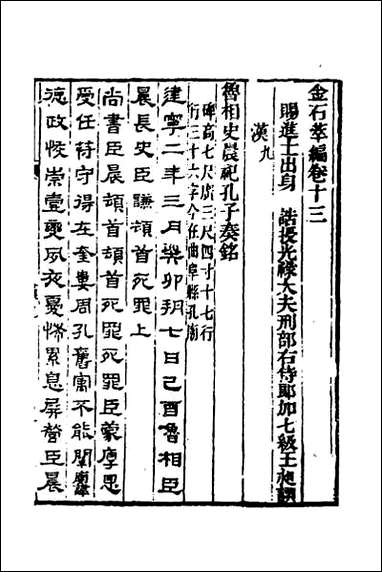 金石萃編卷十三
賜進士出身　誥授光祿大夫刑部右侍郎加七級王昶譔
漢九
魯相史晨祀孔子奏銘
碑高七尺廣三尺四寸十七行
行三十六字今在曲阜縣孔廟
建寧二年三月癸卯朔七日己酉魯相臣
晨長史臣謙頓首死罪上
尚書臣晨頓首頓首死罪死罪臣蒙厚恩
受任符守得在奎婁周孔舊寓不能闡弘
德政恢崇壹變夙夜憂怖累息屏營臣晨